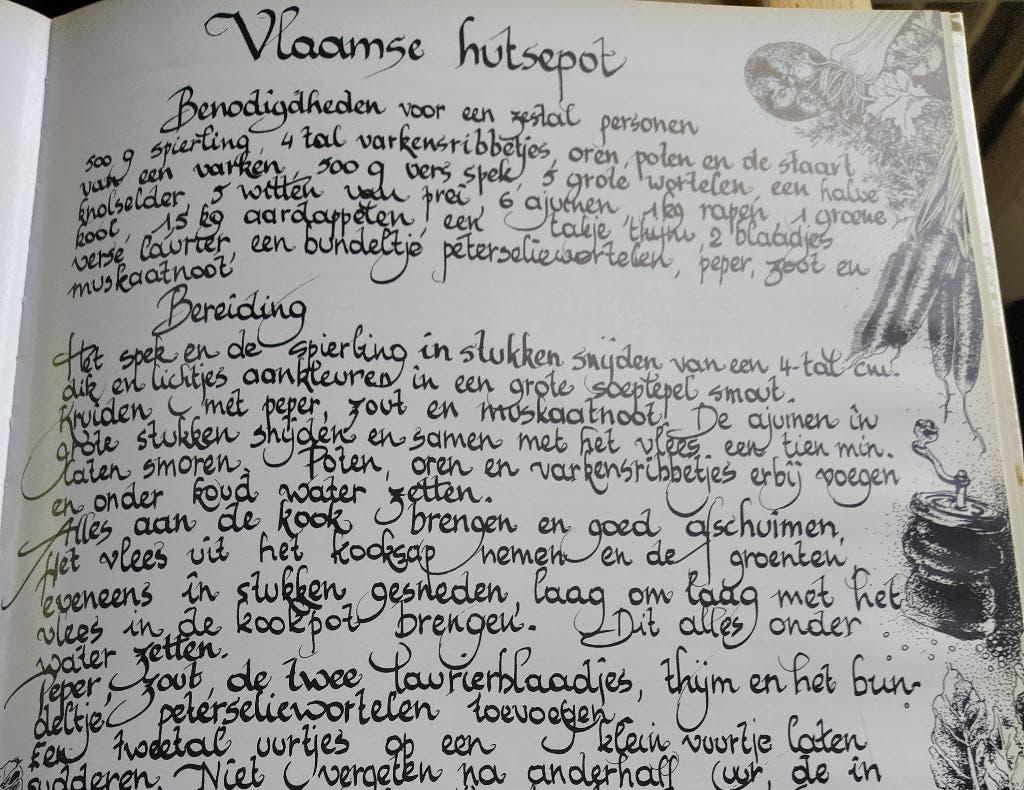 Vlaamse hutsepot
Benodigdheden voor een zestal personen
500 g spierling, 4 tal varkensribbetjes, oren, poten en de staart
van een varken, 500 g vers spek, 5 grote wortelen, een halve
knolselder, 5 witten van prei, 6 ajuinen, 1kg rapen, 1 groene
kool, 1,5 kg aardappelen, een takje thijm, 2 blaadjes
verse laurier, een bundeltje peterseliewortelen, peper, zout en
muskaatnoot
Bereiding
Het spek en de spierling in stukken snijden van een 4-tal cm.
dik en lichtjes aankleuren in een grote soeplepel smout.
Kruiden met peper, zout en muskaatnoot. De ajuinen in
grote stukken snijden en samen met het vlees een tien min.
laten smoren. Poten, oren en varkensribbetjes erbij voegen
en onder koud water zetten.
Alles aan de kook brengen en goed afschuimen,
Het vlees uit het kooksap nemen en de groenten,
eveneens in stukken gesneden, laag om laag met het
vlees in de kookpot brengen. Dit alles onder
water zetten.
Peper, zout, de twee laurierblaadjes, thijm en het bun-
deltje peterseliewortelen toevoegen.
Een tweetal uurtjes op een klein vuurtje laten
sudderen. Niet vergeten na anderhalf uur, de in